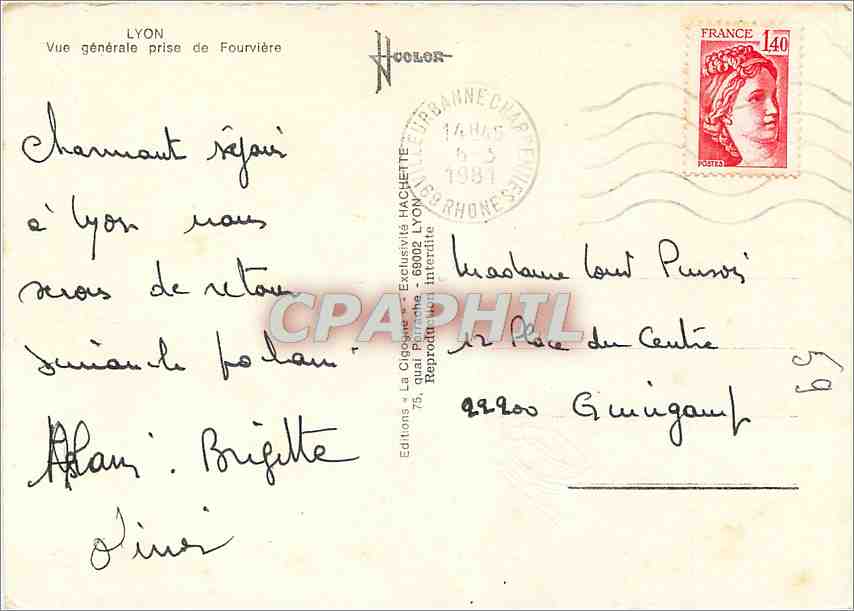 LYON
Vue générale prise de Fourvière
COLOR
FRANCE
1,40
POSTES
VILLEURBANNE CHARPENNES
14H45
1981
69 RHONE
Charmant séjour
à Lyon nous
serons de retour
dimanche prochain
Alain. Brigitte
Editions « La Cigogne » - Exclusivité HACHETTE
75, quai Perrache - 69002 LYON
Reproduction interdite
CPAPHIL
Madame
12 Place du Centre
22200 Guingamp